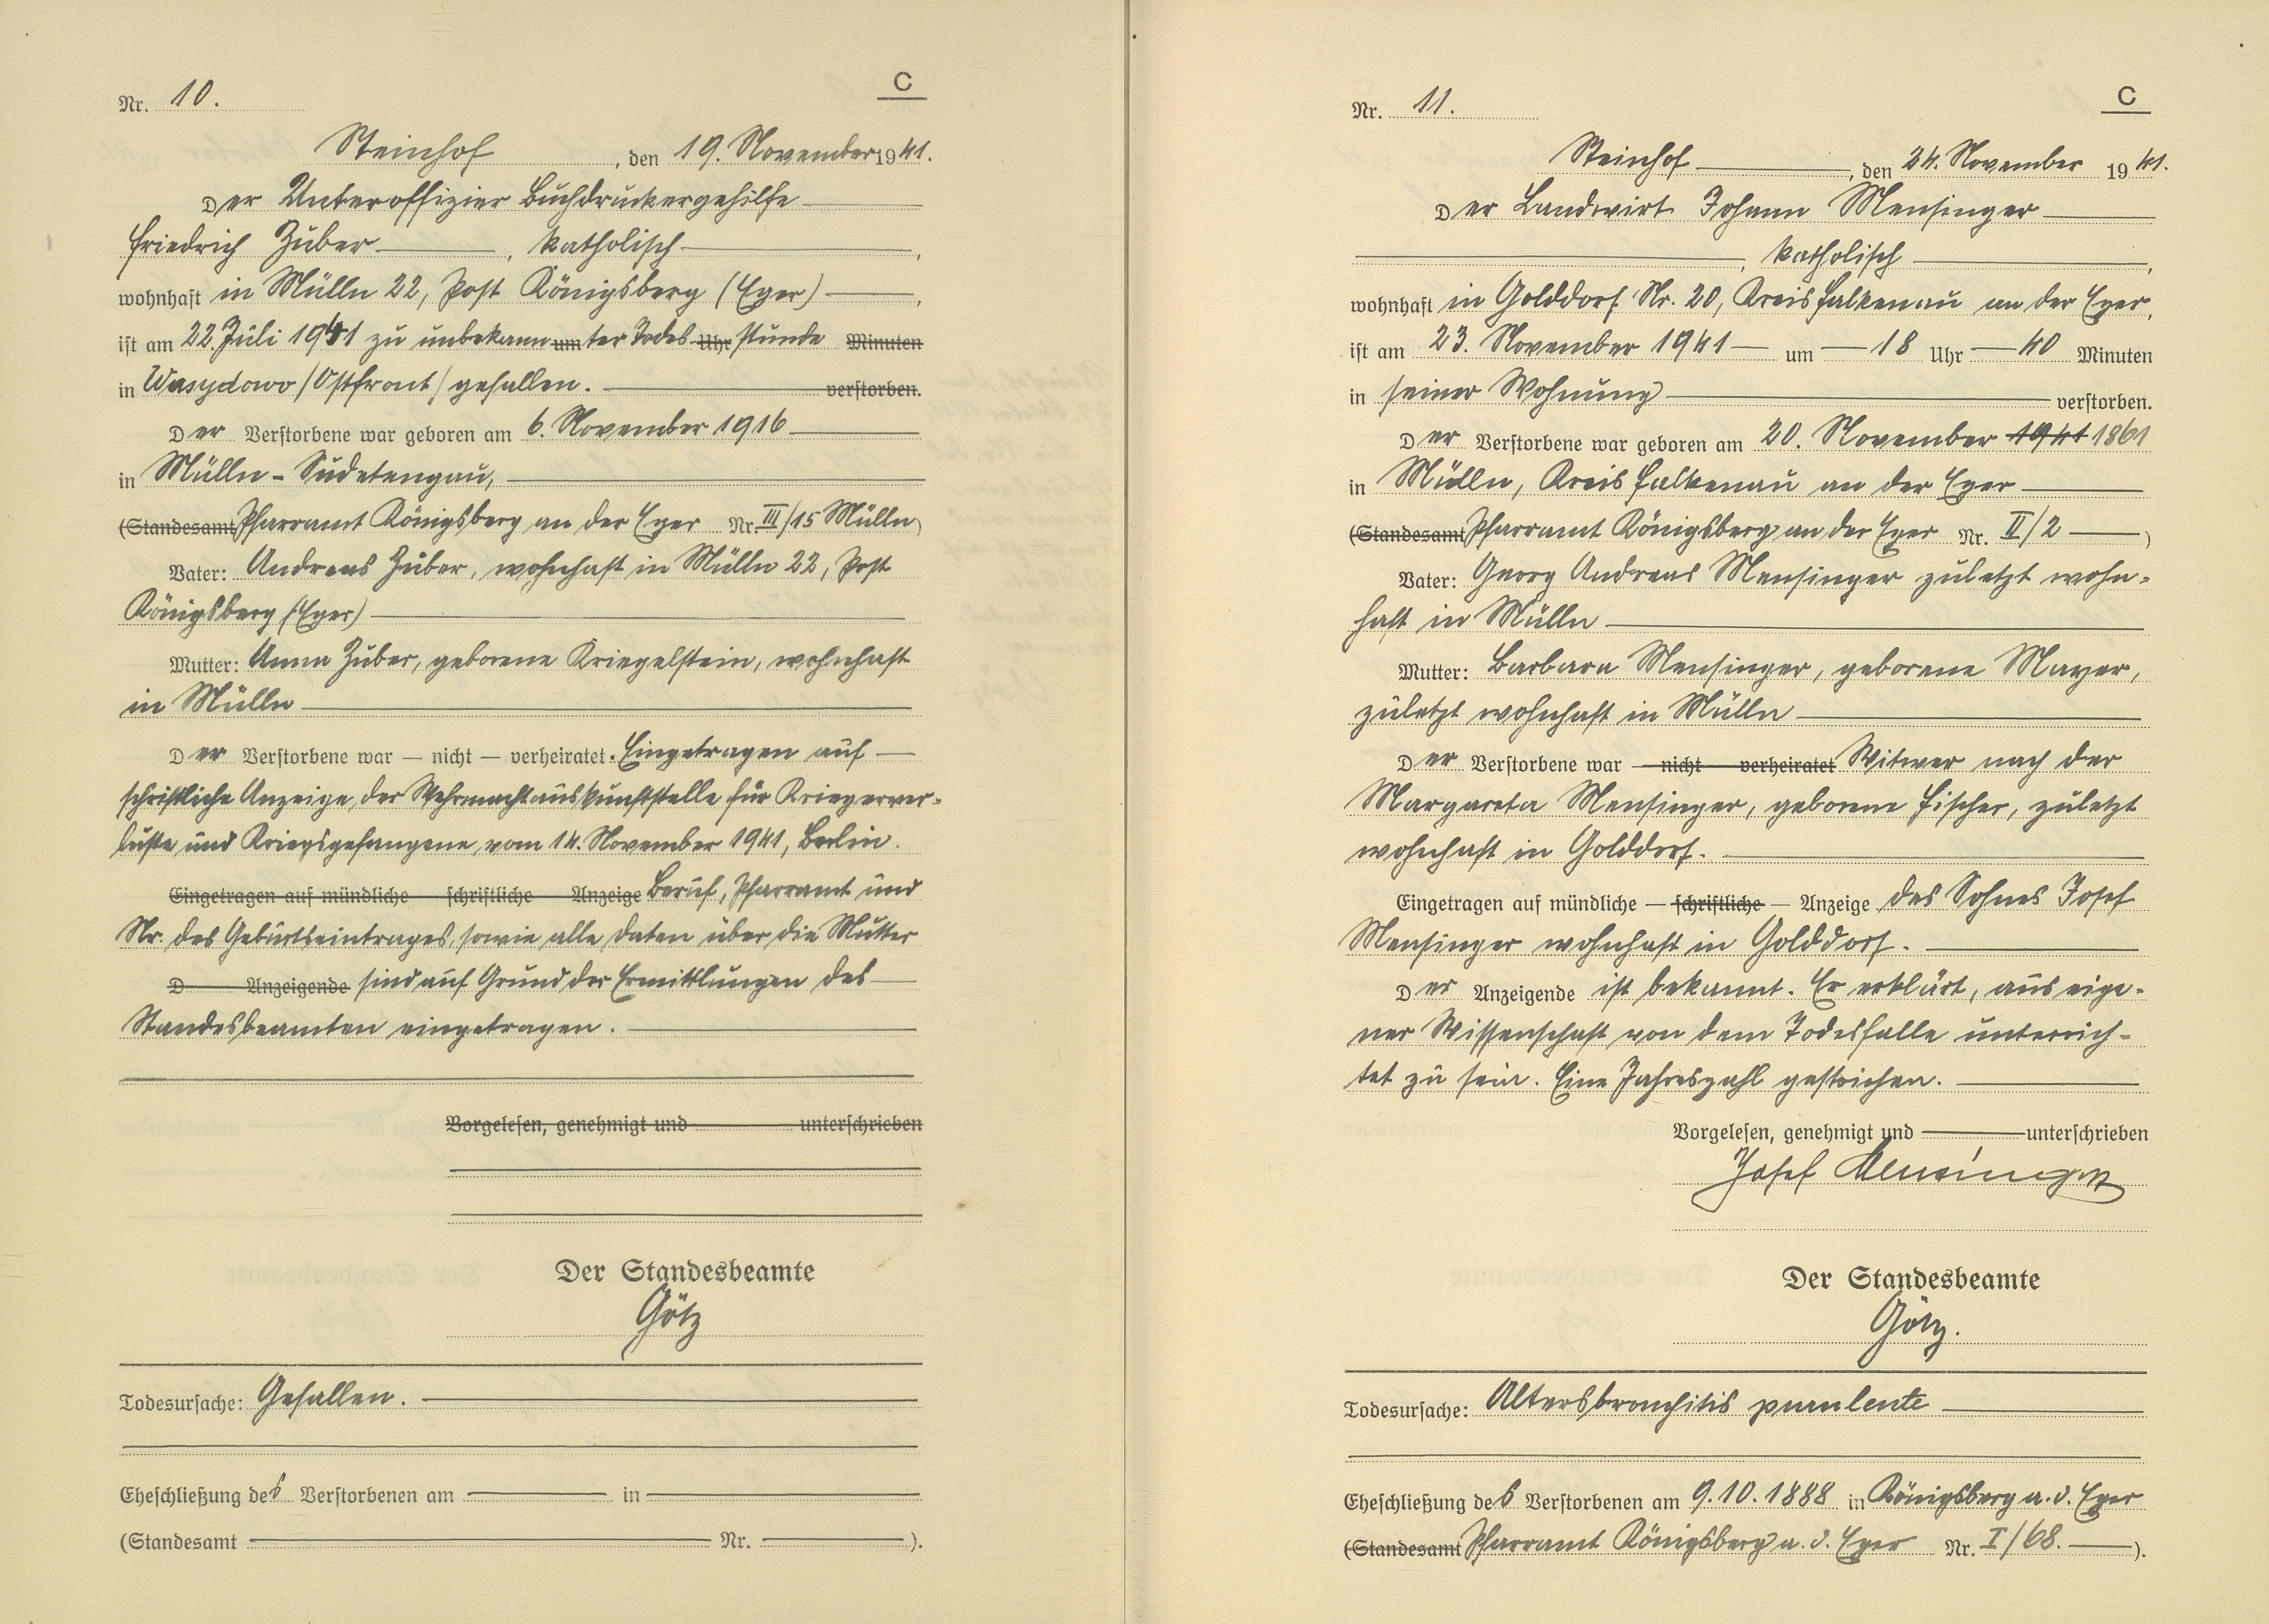 C
Nr. 10.
Steinhof, den 19. November 1941.
Der Unteroffizier Buchdruckergehilfe
Friedrich Zuber, katholisch,
wohnhaft in Mülln 22, Post Königsberg (Eger),
ist am 22. Juli 1941 zu unbekannum ter Todes Uhr stunde Minuten
in Wasydowo (Ostfront) gefallen. verstorben.
Der Verstorbene war geboren am 6. November 1916
in Mülln - Sudetengau,
(Standesamt Pfarramt Königsberg an der Eger Nr. III/15 Mülln)
Vater: Andreas Zuber, wohnhaft in Mülln 22, Post
Königsberg (Eger)
Mutter: Anna Zuber, geborene Kriegelstein, wohnhaft
in Mülln
Der Verstorbene war — nicht — verheiratet. Eingetragen auf
schriftliche Anzeige der Wehrmachtauskunftstelle für Kriegerver-
luste und Kriegsgefangene, vom 14. November 1941, Berlin.
Eingetragen auf mündliche — schriftliche — Anzeige Beruf, Pfarramt und
Nr. des Geburtseintrages, sowie alle Daten über die Mutter
D Anzeigende sind auf Grund der Ermittlungen des
Standesbeamten eingetragen.
Vorgelesen, genehmigt und unterschrieben
Der Standesbeamte
Götz
Todesursache: Gefallen.
Eheschließung des Verstorbenen am in
(Standesamt Nr. ).
C
Nr. 11.
Steinhof, den 24. November 1941.
Der Landwirt Johann Mensinger
, katholisch,
wohnhaft in Golddorf Nr. 20, Kreis Falkenau an der Eger,
ist am 23. November 1941 um 18 Uhr 40 Minuten
in seiner Wohnung verstorben.
Der Verstorbene war geboren am 20. November 1941 1861
in Mülln, Kreis Falkenau an der Eger
(Standesamt Pfarramt Königsberg an der Eger Nr. II/2)
Vater: Georg Andreas Mensinger zuletzt wohn-
haft in Mülln
Mutter: Barbara Mensinger, geborene Mayer,
zuletzt wohnhaft in Mülln
Der Verstorbene war — nicht — verheiratet Witwer nach der
Margareta Mensinger, geborene Fischer, zuletzt
wohnhaft in Golddorf.
Eingetragen auf mündliche — schriftliche — Anzeige des Sohnes Josef
Mensinger wohnhaft in Golddorf.
Der Anzeigende ist bekannt. Er erklärt, aus eige-
ner Wissenschaft von dem Todesfalle unterrich-
tet zu sein. Eine Jahreszahl gestrichen.
Vorgelesen, genehmigt und unterschrieben
Josef Mensinger
Der Standesbeamte
Götz.
Todesursache: Altersbronchitis purulente
Eheschließung des Verstorbenen am 9.10.1888 in Königsberg a. d. Eger
(Standesamt Pfarramt Königsberg a. d. Eger Nr. I/68. ).